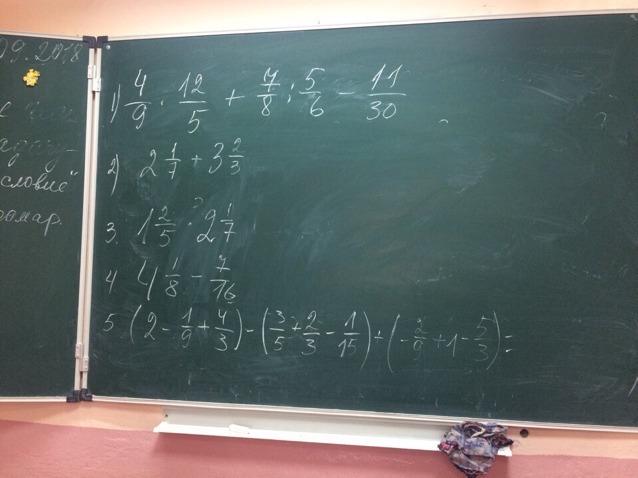 09.2018
словие"
1) 4/9 · 12/5 + 7/8 : 5/6 - 11/30
2) 2 1/7 + 3 2/3
3. 1 2/5 · 2 1/7
4 4 1/8 - 7/16
5 (2 - 1/9 + 4/3) - (3/5 + 2/3 - 1/15) + (- 2/9 + 1 - 5/3) =